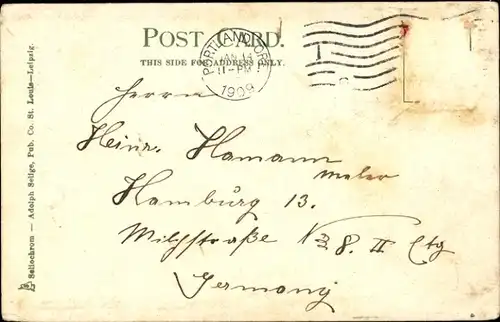 POST CARD.
THIS SIDE FOR ADDRESS ONLY.
PORTLAND, OR
JAN 13
11-PM
1909
Herrn
Heinr. Hamann
Maler
Hamburg 13.
Milchstraße No 8. II Etg
Germany
Sellochrom — Adolph Selige, Pub. Co. St. Louis—Leipzig.